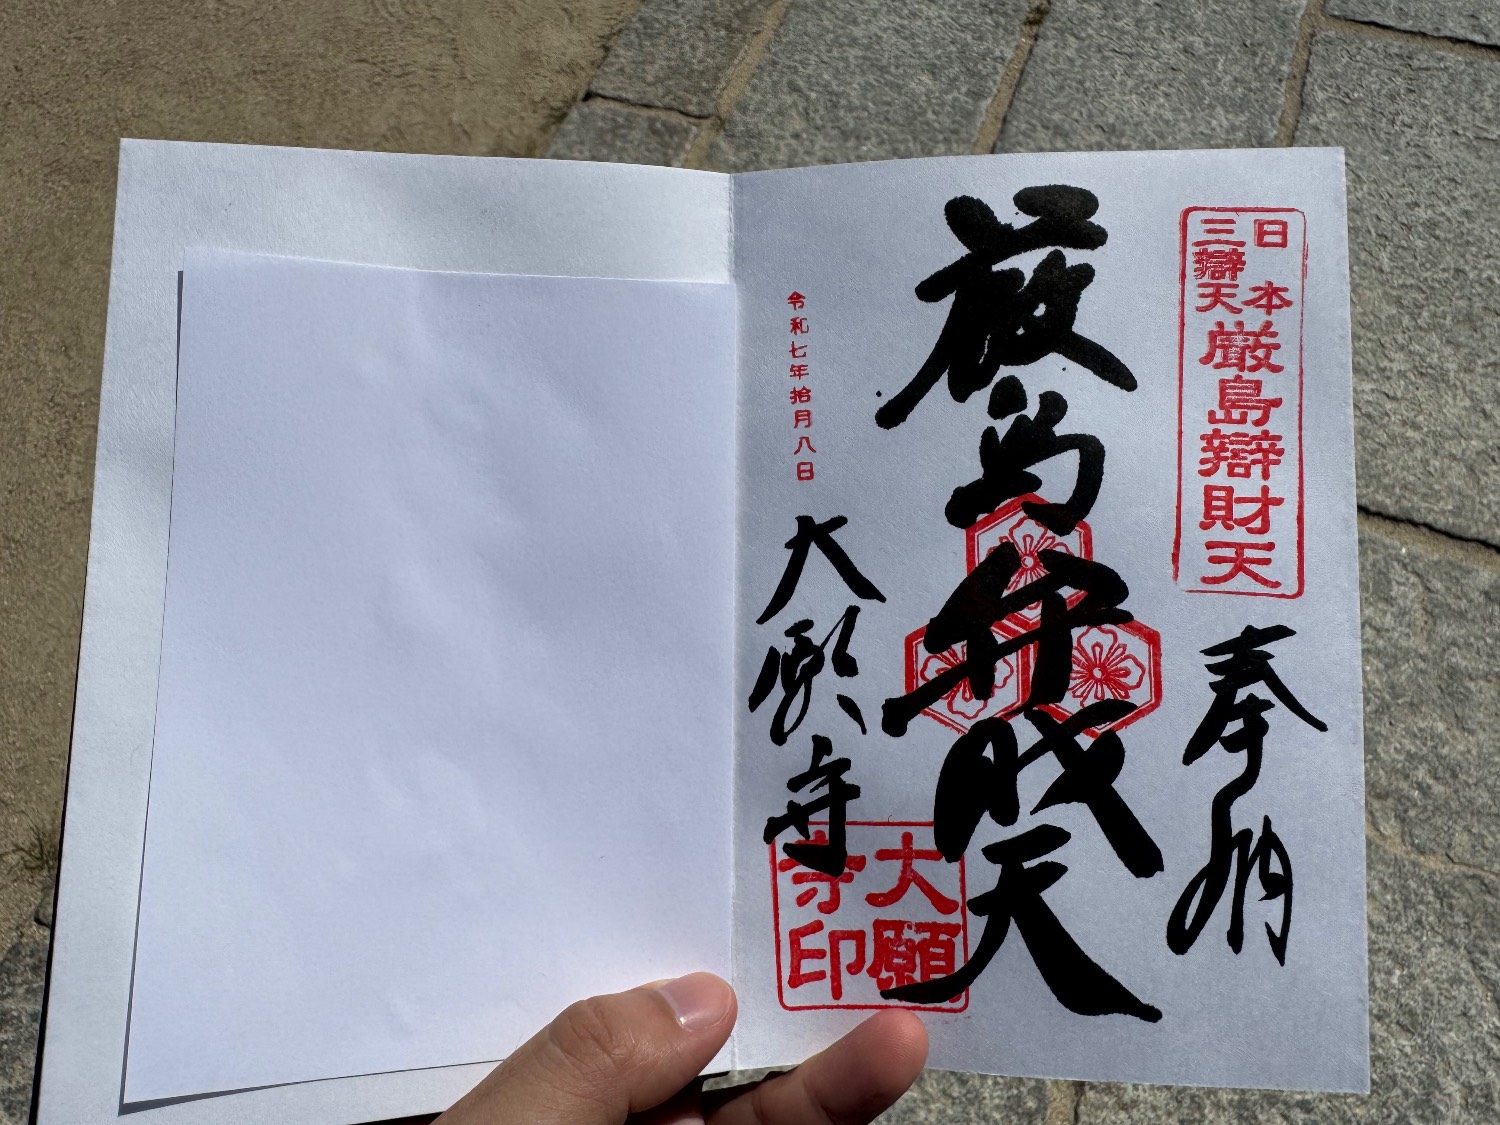 日本
三辯天
厳島辯財天
奉納
厳島弁財天
令和七年拾月八日
大願寺
大願
寺印